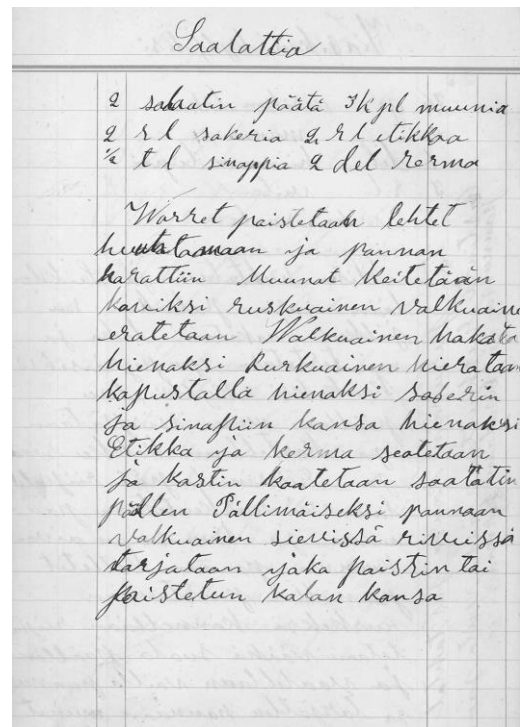 Saalattia
2 salaatin päätä 3 kpl muunia
2 r l sokeria 2 r l etikkaa
½ t l sinappia 2 del rerma
Warret paistetaan lehtet
huuhtomaan ja pannan
karattiin Muunat Keitetään
koviksi ruskuainen valkuaine
eratetaan Walkuainen hakata
hienaksi Ruskuainen hierataan
kapustalla hienaksi sokerin
ja sinapiin kansa hienaksi
Etikka ja kerma seatetaan
ja kastin kaatetaan saatatin
päällen Pällimäiseksi pannaan
valkuainen sievissä riveissä
tarjataan jaka paistin tai
paistetun kalan kansa